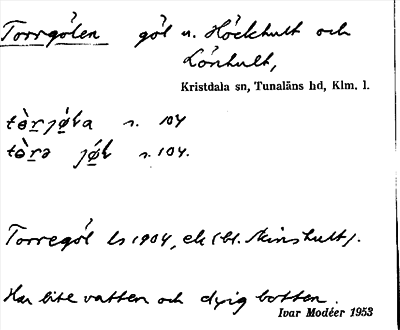 Torrgölen göl n. Höckhult och
Lönhult,
Kristdala sn, Tunaläns hd, Klm. l.
n. 104
n. 104.
Torregöl ls 1904, ek (bl. Skinshult).
Har lite vatten och dyig botten.
Ivar Modéer 1953